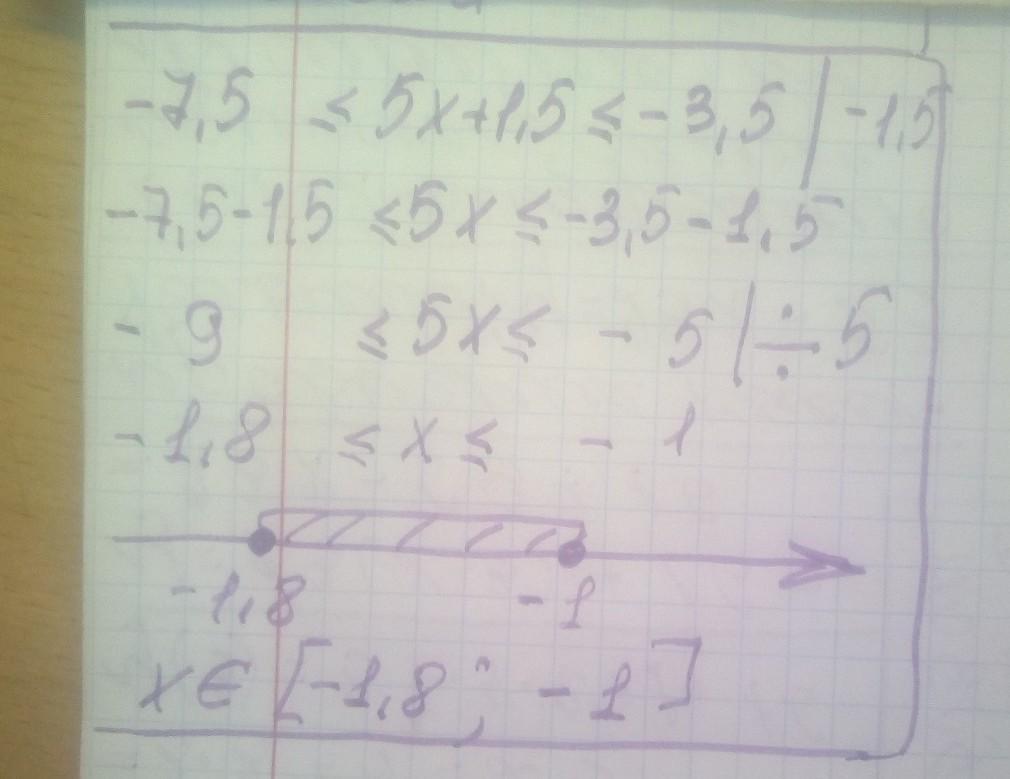 -7,5 ≤ 5x+1,5 ≤ -3,5 | -1,5
-7,5-1,5 ≤ 5x ≤ -3,5-1,5
- 9 ≤ 5x ≤ - 5 | ÷ 5
-1,8 ≤ x ≤ - 1
-1,8 -1
x∈ [-1,8 ; -1]